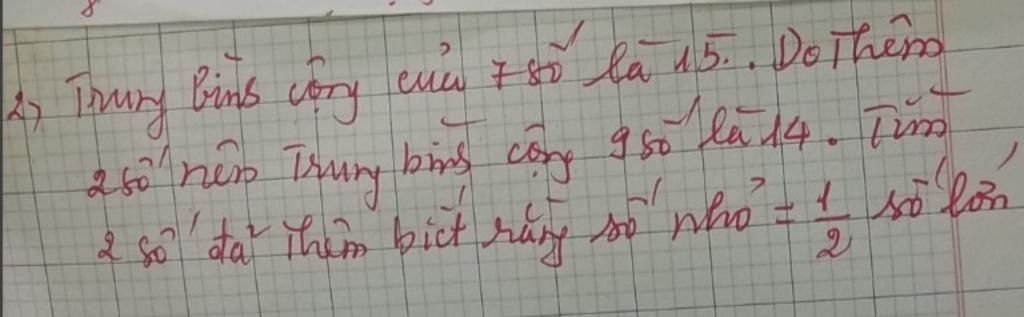 2, Trung bình cộng của 7 số là 15. Do Thêm
2 số nên Trung bình cộng 9 số là 14. Tìm
2 số đã Thêm biết rằng số nhỏ = 1/2 số lớn